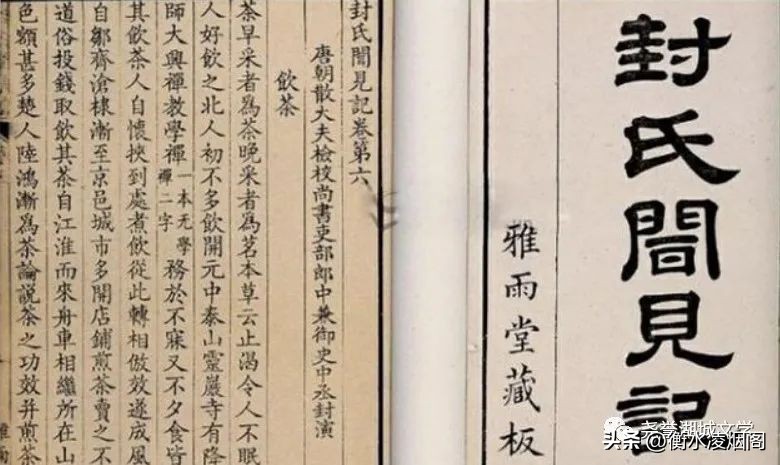 封氏聞見記
雅雨堂藏板
封氏聞見記卷第六
唐朝散大夫檢校尚書吏部郎中兼御史中丞封演
飲茶
茶早采者爲茶晚采者爲茗本草云止渴令人不眠
人好飲之北人初不多飲開元中泰山靈巖寺有降
師大興禪教學禪一本无學禪二字務於不寐又不夕食皆
其飲茶人自懷挾到處煮飲從此轉相倣效遂成風
自鄒齊滄棣漸至京邑城市多開店鋪煎茶賣之不
道俗投錢取飲其茶自江淮而來舟車相繼所在山
色額甚多楚人陸鴻漸爲茶論說茶之功效并煎茶
湖城文学
头条 @衡水凌烟阁